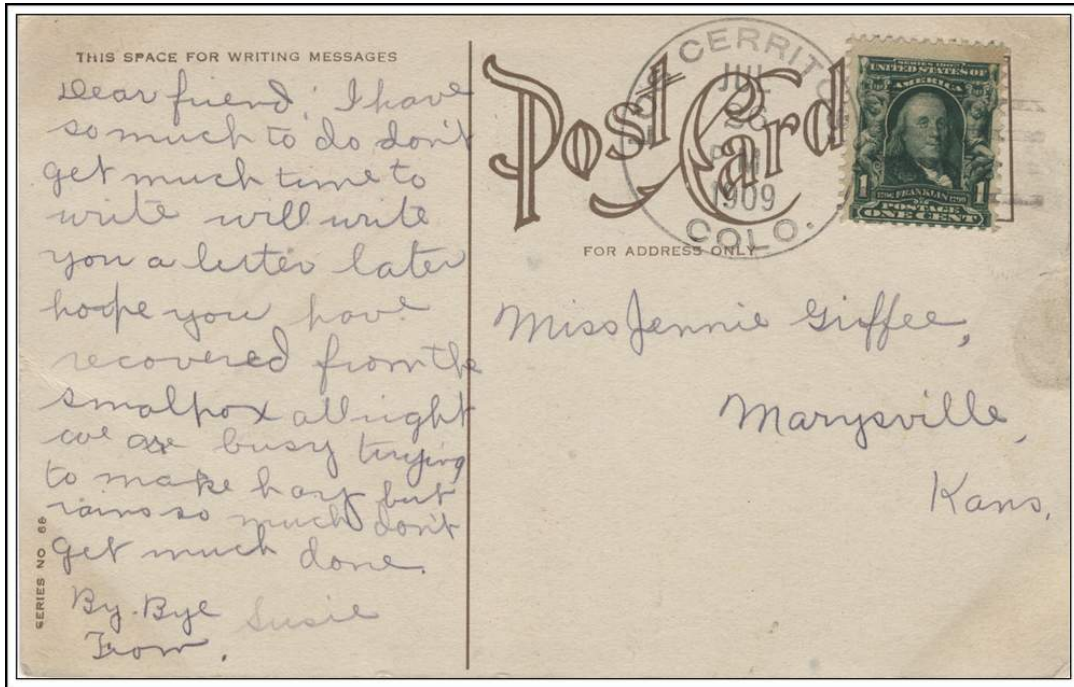 THIS SPACE FOR WRITING MESSAGES
Dear friend, I have
so much to do don't
get much time to
write will write
you a letter later
hope you have
recovered from the
smalpox allright
we are busy trying
to make hay but
rains so much don't
get much done.
By-Bye Susie
From,
SERIES NO 66
Post Card
CERRITO
JUL
26
PM
1909
COLO.
SERIES 1902
UNITED STATES OF
AMERICA
1
1706 FRANKLIN 1790
1
POSTAGE
ONE CENT
FOR ADDRESS ONLY
Miss Jennie Giffee,
Marysville,
Kans.